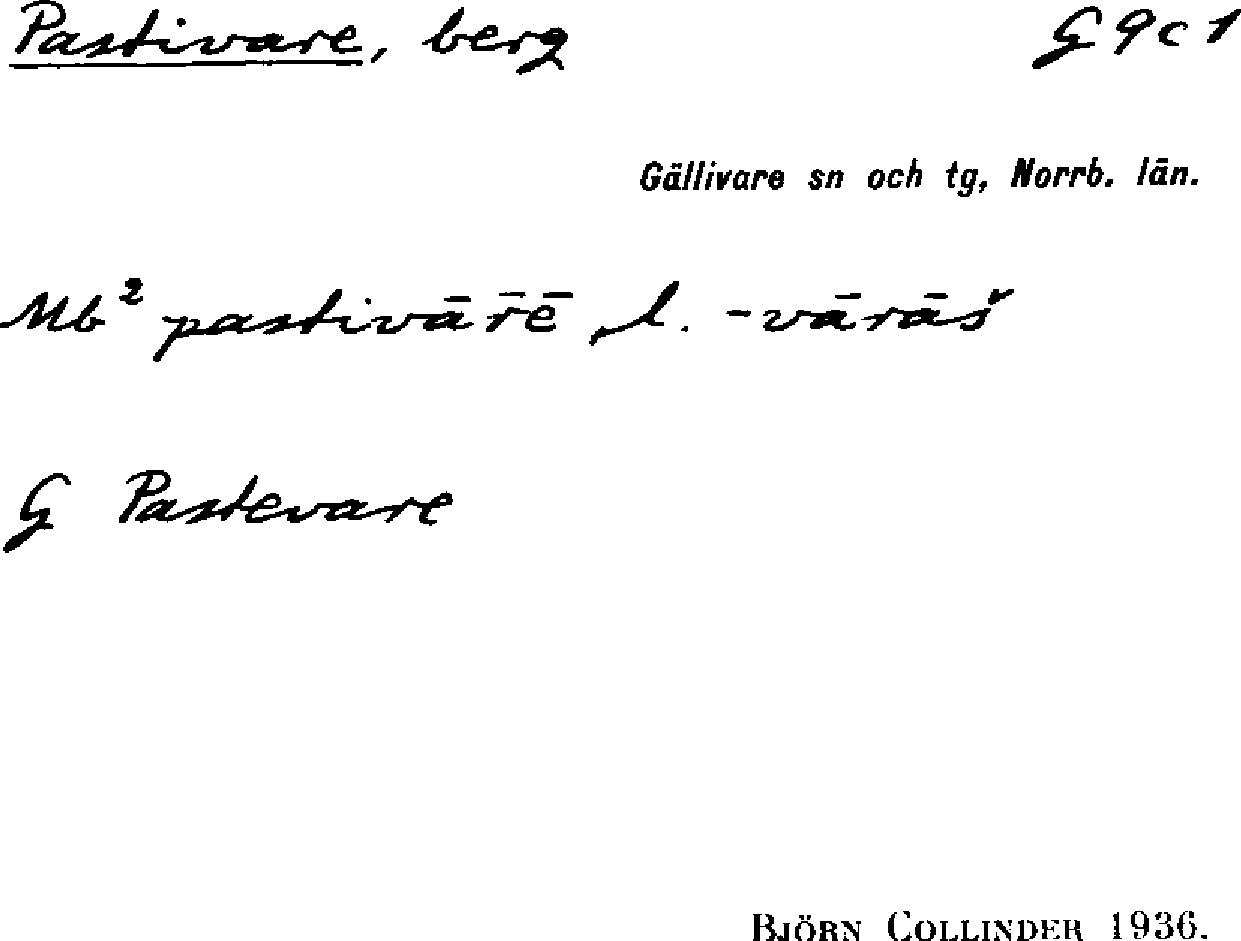 Pastivare, berg G9c1
Gällivare sn och tg, Norrb. län.
Mb² pastivār̄ē, l. -vārāš
G Pastevare
BJÖRN COLLINDER 1936.